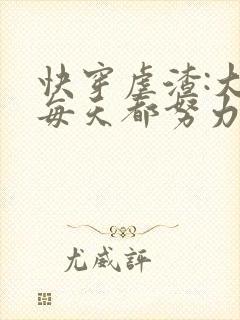 快穿虐渣:大
每天都努力
尤威評